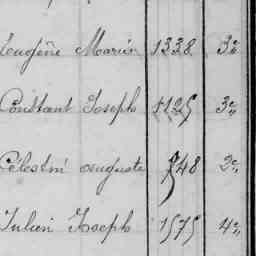 Eugène Marin 1338 3e
Constant Joseph 1125 3e
Célestin Auguste 748 2e
Julien Joseph 1575 4e